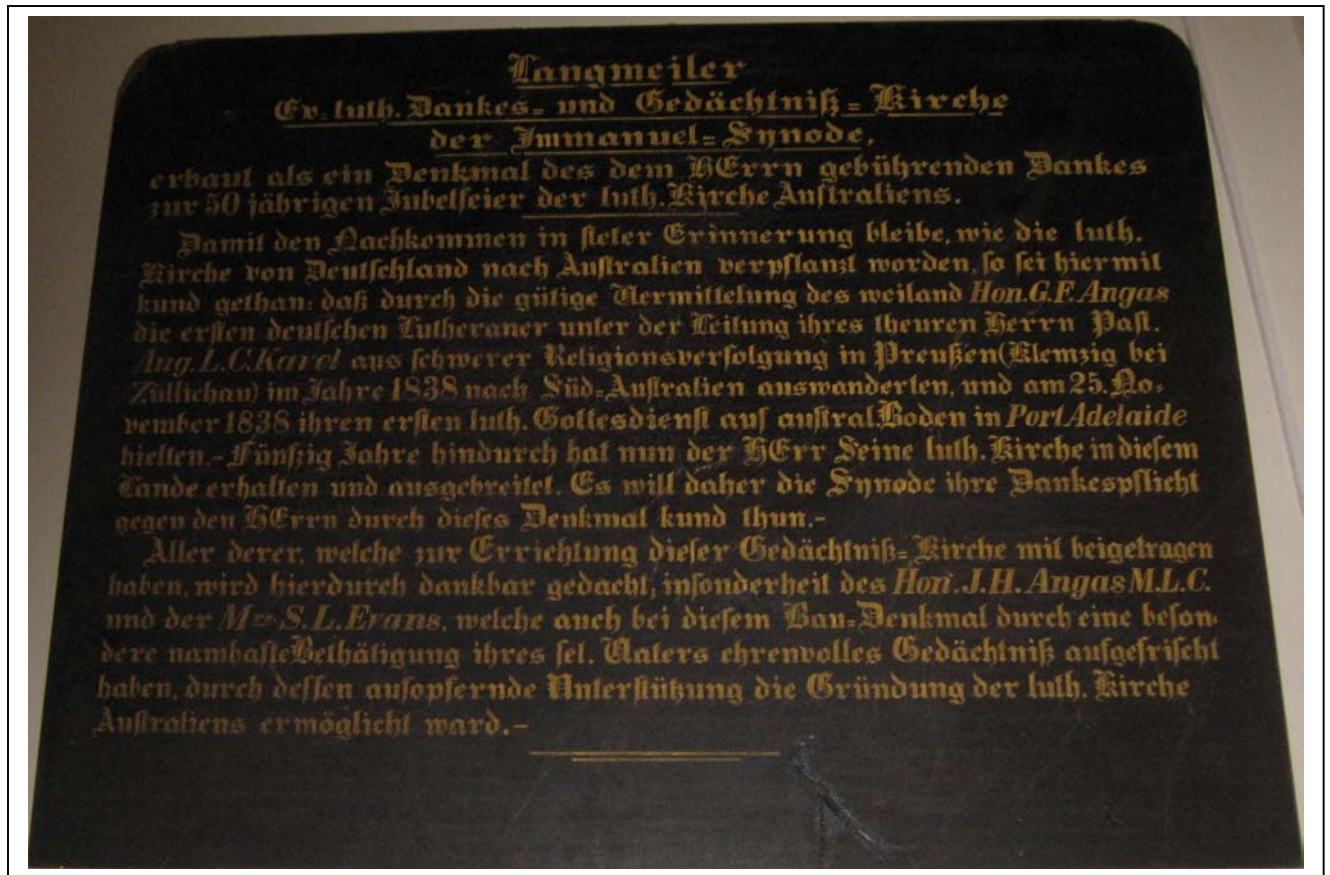 Langmeiler
Ev=luth. Dankes= und Gedächtniß=Kirche
der Immanuel=Synode,
erbaut als ein Denkmal des dem HErrn gebührenden Dankes
zur 50 jährigen Jubelfeier der luth. Kirche Australiens.
Damit den Nachkommen in steter Erinnerung bleibe, wie die luth.
Kirche von Deutschland nach Australien verpflanzt worden, so sei hiermit
kund gethan: daß durch die gütige Vermittelung des weiland Hon. G. F. Angas
die ersten deutschen Lutheraner unter der Leitung ihres theuren Herrn Past.
Aug. L. C. Kavel aus schwerer Religionsverfolgung in Preußen (Klemzig bei
Züllichau) im Jahre 1838 nach Süd=Australien auswanderten, und am 25. No=
vember 1838 ihren ersten luth. Gottesdienst auf austral. Boden in Port Adelaide
hielten.- Fünfzig Jahre hindurch hat nun der HErr Seine luth. Kirche in diesem
Lande erhalten und ausgebreitet. Es will daher die Synode ihre Dankespflicht
gegen den HErrn durch dieses Denkmal kund thun.-
Aller derer, welche zur Errichtung dieser Gedächtniß=Kirche mit beigetragen
haben, wird hierdurch dankbar gedacht, insonderheit des Hon. J. H. Angas M.L.C.
und der Mrs S. L. Evans, welche auch bei diesem Bau=Denkmal durch eine beson=
dere namhafte Bethätigung ihres sel. Vaters ehrenvolles Gedächtniß aufgefrischt
haben, durch dessen aufopfernde Unterstützung die Gründung der luth. Kirche
Australiens ermöglicht ward.-